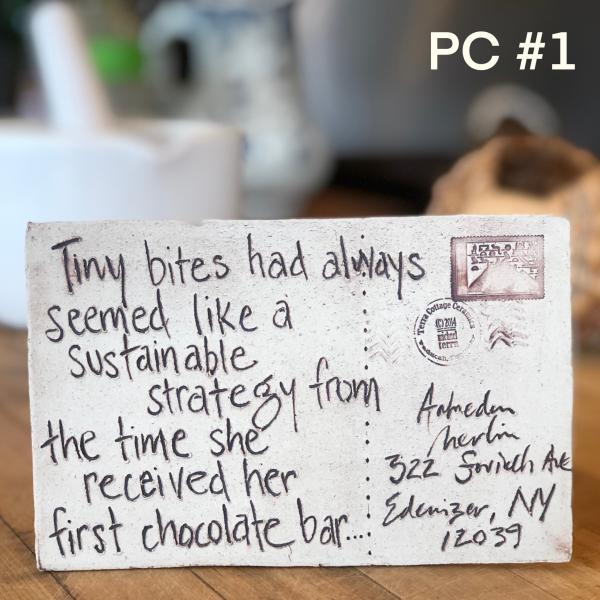 PC #1
Tiny bites had always
seemed like a
sustainable
strategy from
the time she
received her
first chocolate bar...
Terra Cottage Ceramics
(C) 2014
terra
322
Ave
NY
12039